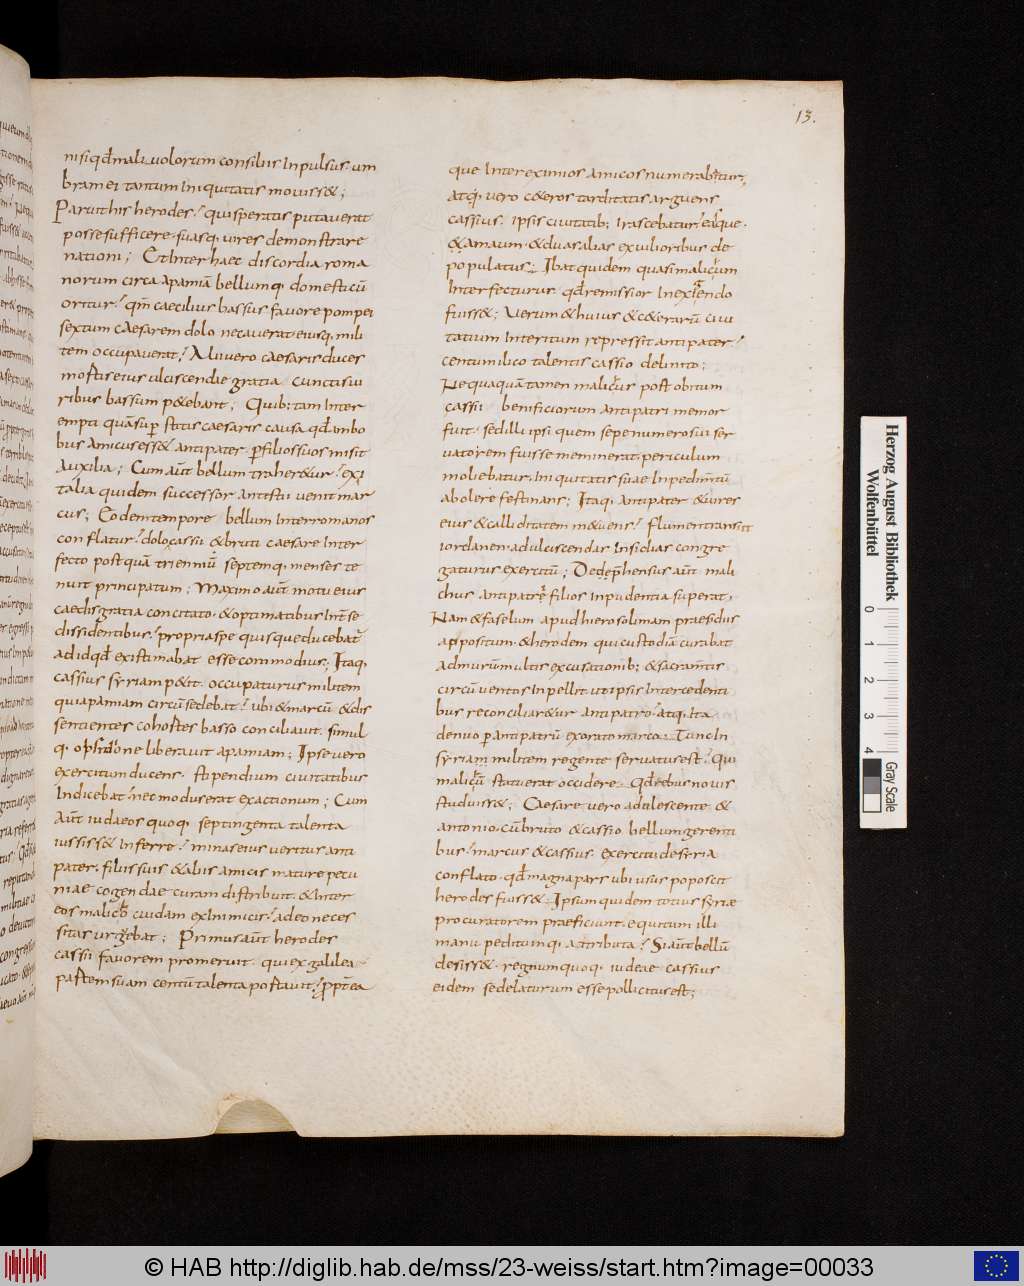 13.
nisi qđ maliuolorum consiliis inpulsus um
bram ei tantum iniquitatis mouiss&;
Paruit his herodes? qui speratis putauerat
posse sufficere suasq; uires demonstrare
nationi; Et inter haec discordia roma
norum circa apamiā bellumq; domesticū
oritur? qm̄ caecilius bassus fauore pompei
sextum caesarem dolo necauerat eiusq; mili
tem occupauerat? Alii uero caesaris duces
mortis eius ulciscendae gratia cunctis ui
ribus bassum p&ebant; Quib; tam inter
empti quā sup̄stitis caesaris causa qđ ambo
bus amicus ess& antipater p̄ filios suos misit
auxilia; Cum aūt bellum traher&ur? ex i
talia quidem successor antistii uenit mar
cus; Eodem tempore bellum inter romanos
conflatur? dolo cassii & bruti caesare inter
fecto postquā trienniū septemq; menses te
nuit principatum; Maximo aūt motu eius
caedis gratia concitato & optimatibus int̄ se
dissidentibus? propria spe quisque ducebat̄
ad id qđ existimabat esse commodius; Itaq;
cassius syriam p&it occupaturus militem
qui apamiam circū sedebat? ubi & marcū & dis
sentientes cohortes basso conciliauit simul
q; opsidione liberauit apamiam; Ipse uero
exercitum ducens stipendium ciuitatibus
indicebat? nec modus erat exactionum; Cum
aūt iudaeos quoq; septingenta talenta
iussiss& inferre? minas eius ueritus anti
pater filiis suis & aliis amicis mature pecu
niae cogendae curam distribuit & inter
eos malicħo cuidam ex inimicis? adeo neces
sitas urgebat; Primus aūt herodes
cassii fauorem promeruit qui ex galilea
partem suam centū talenta portauit? propt̄ea
que inter eximios amicos numerabatur,
atq; uero c&eros tarditatis arguens
cassius ipsis ciuitatib; irascebatur? eaque
& amaun & duas alias ex uilioribus de
populatus; Ibat quidem quasi malicħum
interfecturus qđ remissior in exigendo
fuiss&; Uerum & huius & c&erarū ciui
tatium interitum repressit antipater?
centum ilico talentis cassio delinito;
Nequaquā tamen malicħus post obitum
cassii benificiorum antipatri memor
fuit sed illi ipsi quem sepenumero sui ser
uatorem fuisse meminerat periculum
moliebatur iniquitatis suae inpedim̄tū
abolere festinans; Itaq; antipater & uires
eius & calliditatem m&uens? flumen transiit
iordanen ad ulciscendas insidias congre
gaturus exercitū; Dedep̄hensus aūt mali
chus antipatri filios inpudentia superat;
Nam & faselum apud hierosolimam praesidiis
appositum & herodem qui custodiā curabat
admurū multis excusationib; & sacram̄tis
circūuentos inpellit uti ipsis intercedenti
bus reconciliar&ur antipatro? atq; ita
denuo p̄ antipatrū exorato marco Tunc in
syriam militem regente seruatus est? Qui
malicħū statuerat occidere Qđ rebus nouis
studuiss&; Caesare uero adulescente &
antonio cū bruto & cassio bellum gerenti
bus? marcus & cassius exercitu de siria
conflato qđ magna pars ubi usus poposcit
herodes fuiss& Ipsum quidem totius syriae
procuratorem praeficiunt equitum illi
manu peditumq; attributa? Si aūt bellū
desiss& regnum quoq; iudeae cassius
eidem se delaturum esse pollicitus est;
Herzog August Bibliothek
Wolfenbüttel
0 1 2 3 4
Gray Scale
© HAB http://diglib.hab.de/mss/23-weiss/start.htm?image=00033